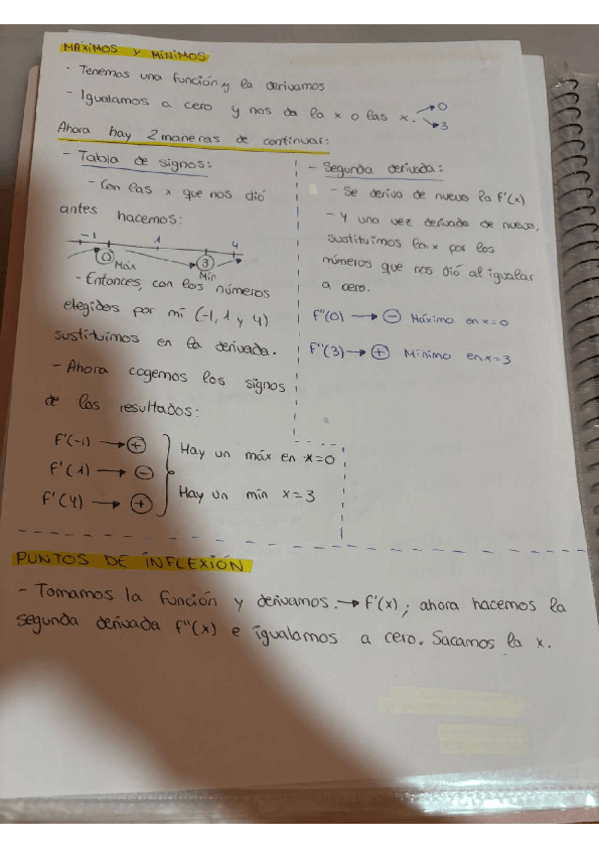 MÁXIMOS Y MÍNIMOS
- Tenemos una función y la derivamos
- Igualamos a cero y nos da la x o las x. → 0
→ 3
Ahora hay 2 maneras de continuar:
- Tabla de signos:
- Con las x que nos dió
antes hacemos:
-1 1 4
0 Máx 3 Mín
- Entonces, con los números
elegidos por mi (-1, 1 y 4)
sustituimos en la derivada.
- Ahora cogemos los signos
de los resultados:
f'(-1) → +
f'(1) → -
f'(4) → +
Hay un máx en x=0
Hay un min x=3
- Segunda derivada:
- Se deriva de nuevo la f'(x)
- Y una vez derivada de nuevo,
sustituimos la x por los
números que nos dió al igualar
a cero.
f''(0) → - Máximo en x=0
f''(3) → + Mínimo en x=3
PUNTOS DE INFLEXIÓN
- Tomamos la función y derivamos. → f'(x); ahora hacemos la
segunda derivada f''(x) e igualamos a cero. Sacamos la x.